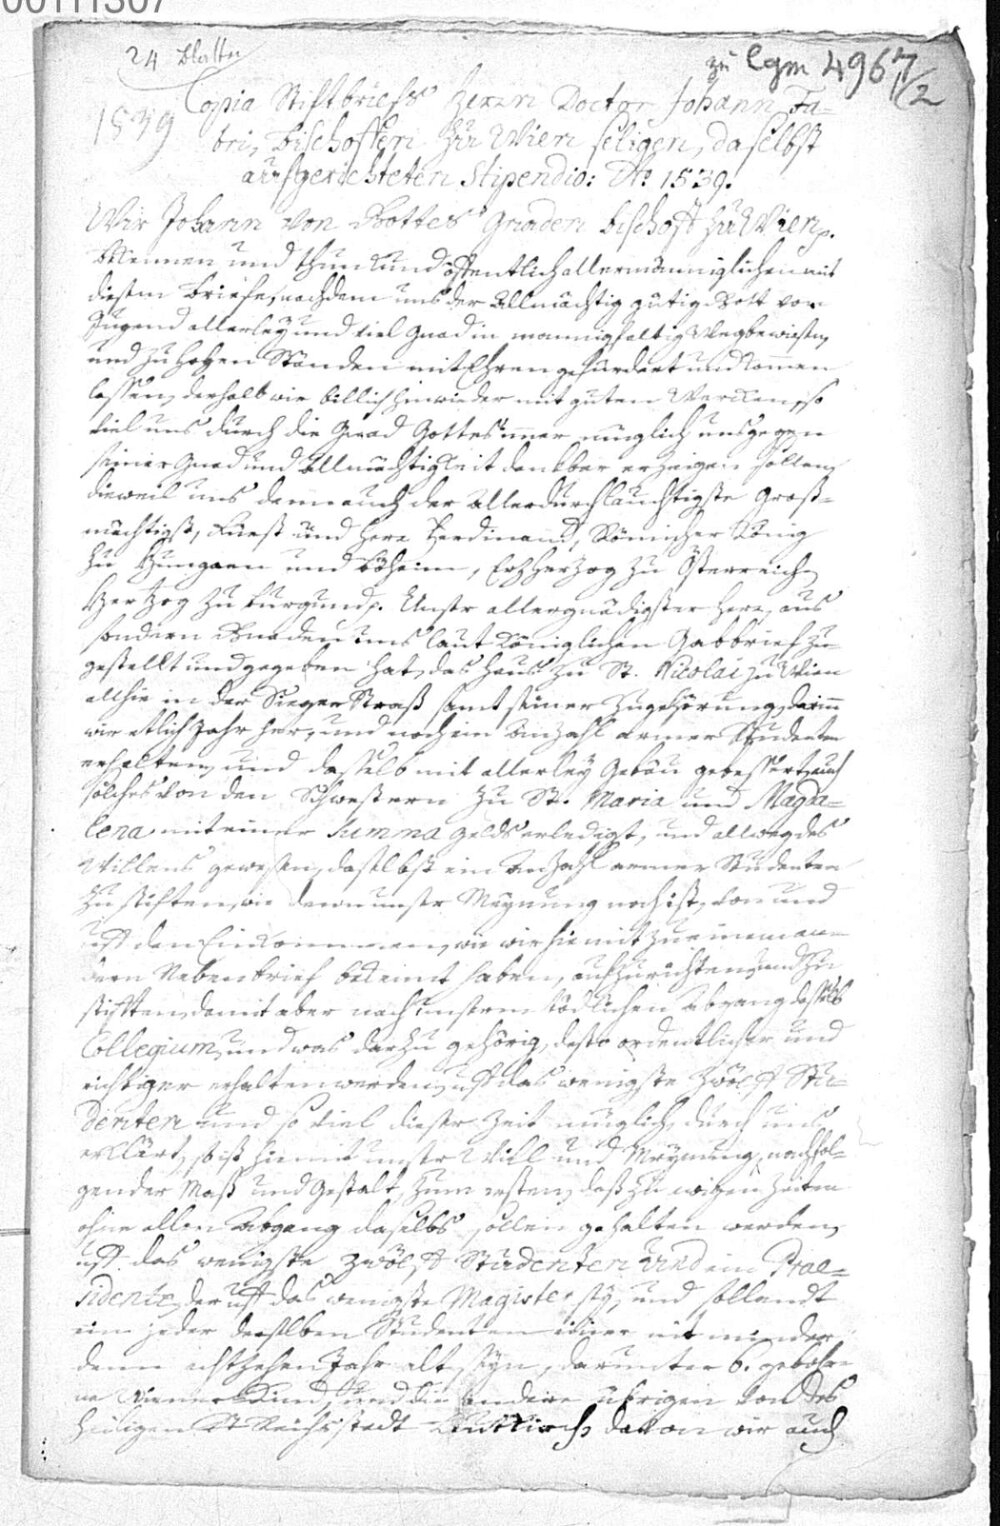 00111307
24 Blätter
zu Cgm 4967/2
1539
Copia Stiftbriefs Herrn Doctor Johann Fa-
bri, Bischoffen zu Wien seligen, daselbst
aufgerichteten Stipendio: Ao. 1539.
Wir Johann von Gottes Gnaden Bischoff zu Wien p.
Bekennen und thun kund öffentlich allermänniglichen mit
diesem Briefe, nachdem uns der Allmächtig gütig Gott von
Jugend allerley und viel Gnad in mannigfaltig Weg bewiesen,
und zu hohen Ständen mit Ehren gefürdert und kommen
lassen, derhalb wir billich hinwieder mit guten Wercken, so
viel uns durch die Gnad Gottes immer müglich uns gegen
seiner Gnad und Allmächtigkeit danckbar erzeigen sollen,
dieweil uns dann auch der Allerdurchlauchtigste Groß-
mächtigst, Fürst und Herr Ferdinand, Römischer König
zu Hungarn und Böheim, Erzherzog zu Österreich,
Herzog zu Burgund p. Unser allergnädigster Herr, aus
sondern Gnaden uns laut Königlichen Gabbrief zu-
gestellt und gegeben hat, das Haus zu St. Nicolai zu Wien
allhie in der Singer Straß samt seiner Zugehörung, darinn
wir etlich Jahr her, und noch ein Anzahl armer Studenten
erhalten, und dasselb mit allerley Gebäu gebessert, auch
solches von den Schwestern zu St. Maria und Magda-
lena mit einer Summa Gelds erledigt, und allweg des
Willens gewesen, daselbst ein Anzahl armer Studenten
zu stiften, wie dann unser Meynung noch ist, von und
uff den Einkommen, wie wir hiemit zu einem an-
dern Nebenbrief bestimt haben, aufzurichten und zu
stifften, damit aber nach unserm tödlichen Abgang dasselb
Collegium, und was darzu gehörig, desto ordentlicher und
richtiger erhalten werden, uff das wenigste zwölff Stu-
denten und so viel dieser Zeit müglich, durch uns
erklärt, so ist hiemit unser Will und Meynung, nachfol-
gender Maß und Gestalt, zum ersten, daß zu ewigen Zeiten
ohne allen Abgang daselbs sollen gehalten werden,
uff das wenigste zwölff Studenten und ein Prae-
sidente, der uff das wenigste Magister sey, und sollendt
ein jeder derselben Studenten nit minder
denn achtzehen Jahr alt seyn, darunter 6. gebohr-
ne Wiener Kind, und die andere übrigen von des
heiligen Reichs Stadt Leutkirch, davon wir auch